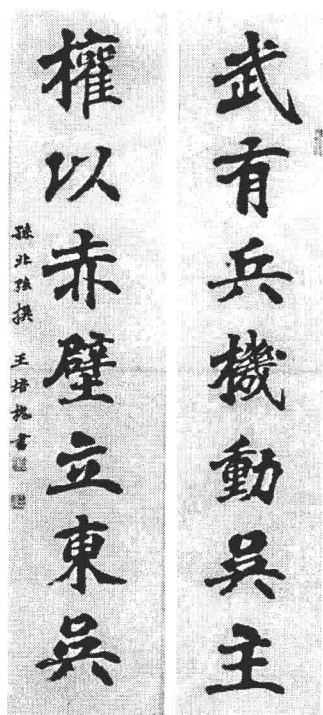 武有兵機動吳主
權以赤壁立東吳
孫北弦撰 王培槐書